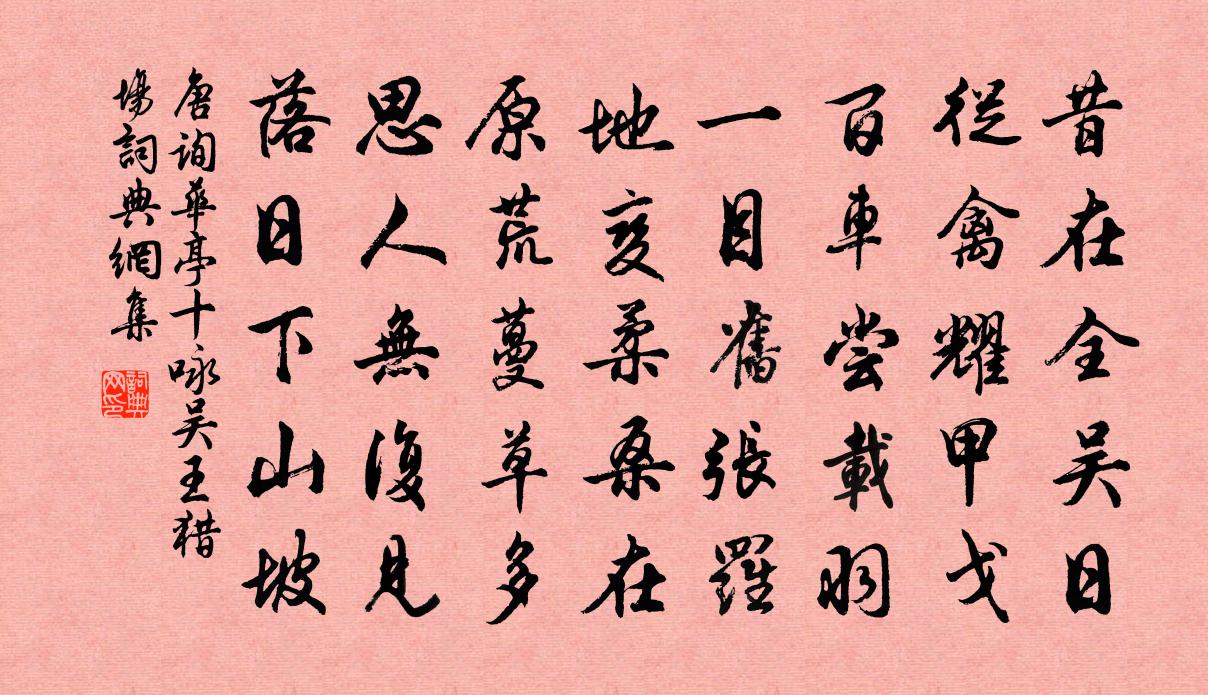 昔在全吴日
從禽耀甲戈
百車嘗載羽
一目舊張羅
地變柔桑在
原荒蔓草多
思人無復見
落日下山坡
唐詢華亭十咏吴王猎
場詞典網集
詞典
网印